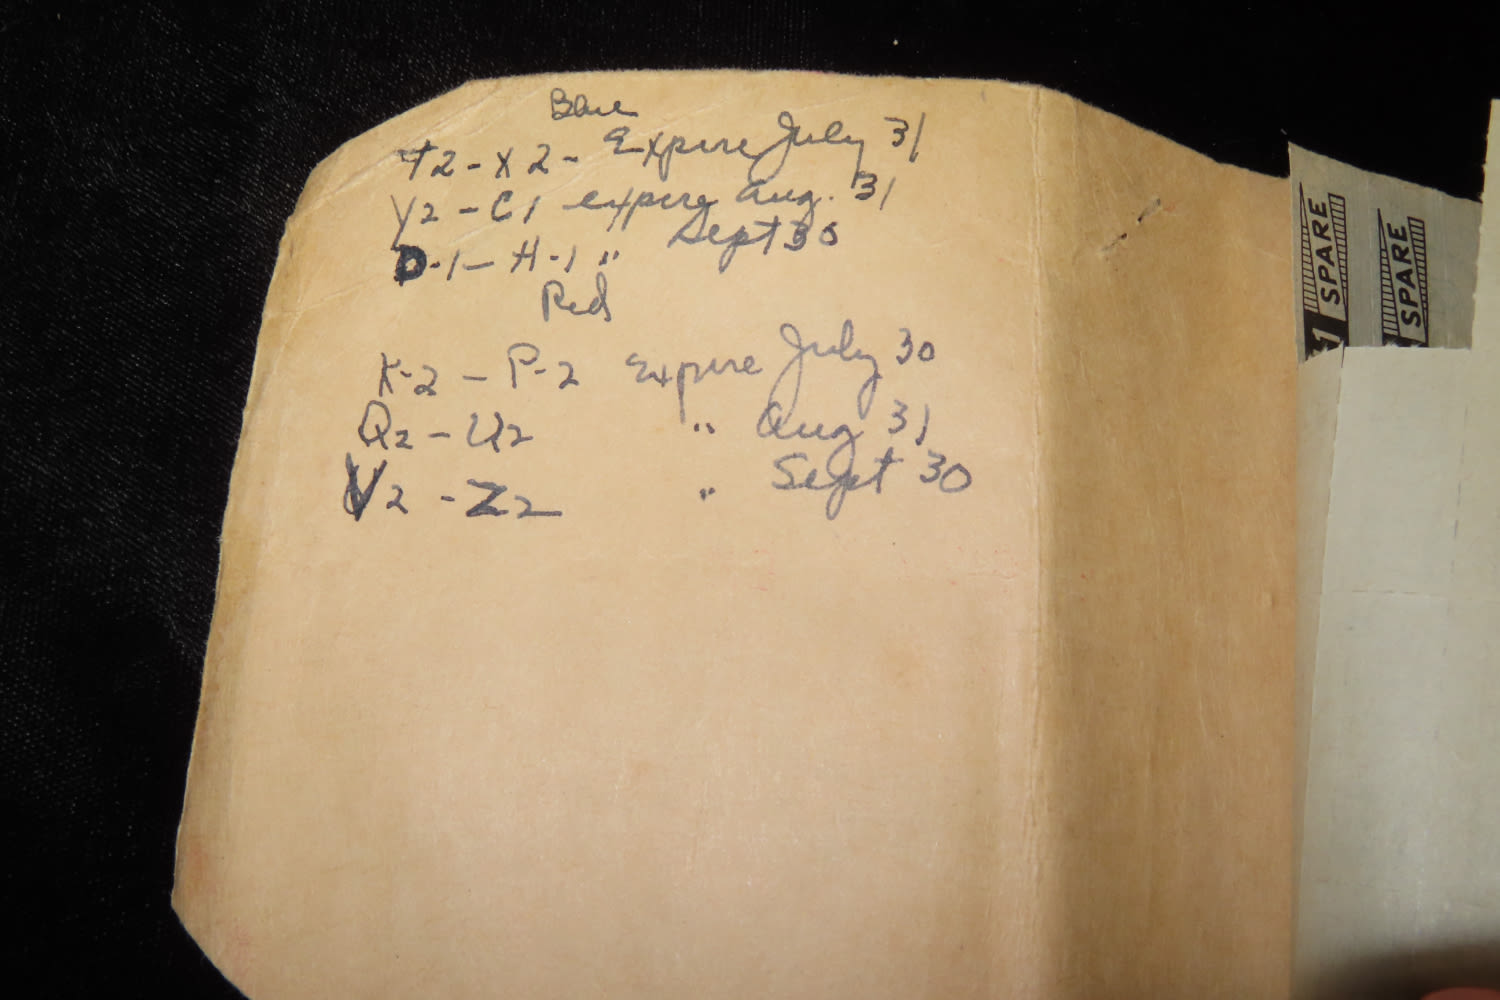 Blue
T2 - X2 - Expire July 31
Y2 - C1 expire Aug. 31
D-1 - H-1 " Sept 30
Red
K-2 - P-2 Expire July 30
Q2 - U2 " Aug 31
V2 - Z2 " Sept 30
1 SPARE
SPARE